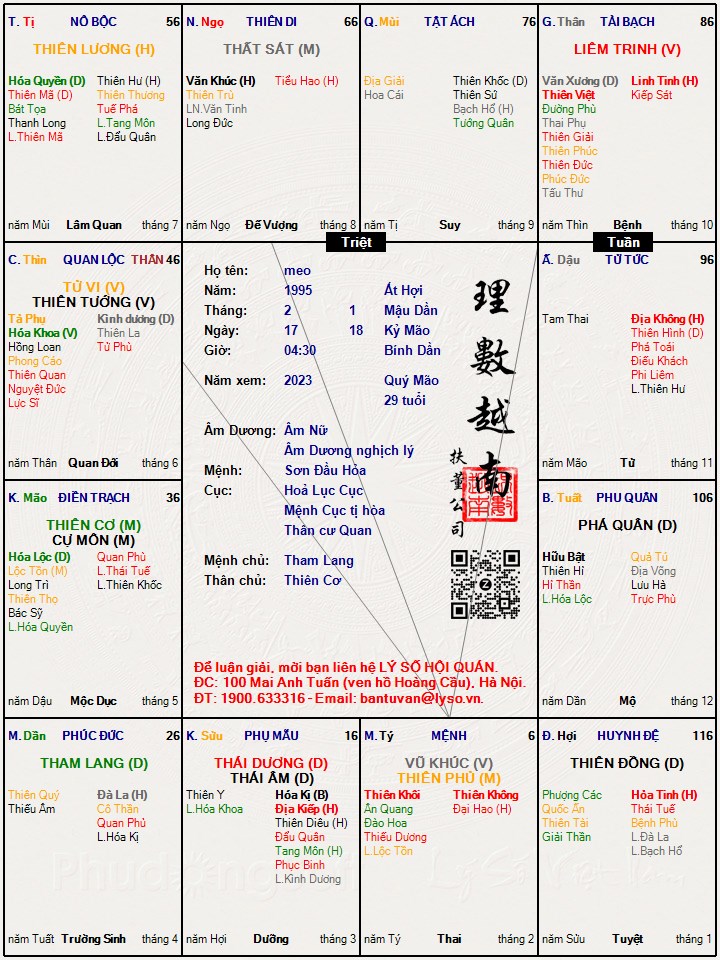 T. Tị NÔ BỘC 56
THIÊN LƯƠNG (H)
Hóa Quyền (D) Thiên Hư (H)
Thiên Mã (D) Thiên Thương
Bát Tọa Tuế Phá
Thanh Long L.Tang Môn
L.Thiên Mã L.Đẩu Quân
năm Mùi Lâm Quan tháng 7
N. Ngọ THIÊN DI 66
THẤT SÁT (M)
Văn Khúc (H) Tiểu Hao (H)
Thiên Trù
LN.Văn Tinh
Long Đức
năm Ngọ Đế Vượng tháng 8
Q. Mùi TẬT ÁCH 76
Địa Giải Thiên Khốc (D)
Hoa Cái Thiên Sứ
Bạch Hổ (H)
Tướng Quân
năm Tị Suy tháng 9
G. Thân TÀI BẠCH 86
LIÊM TRINH (V)
Văn Xương (D) Linh Tinh (H)
Thiên Việt Kiếp Sát
Đường Phù
Thai Phụ
Thiên Giải
Thiên Phúc
Thiên Đức
Phúc Đức
Tấu Thư
năm Thìn Bệnh tháng 10
Triệt
Tuần
C. Thìn QUAN LỘC THÂN 46
TỬ VI (V)
THIÊN TƯỚNG (V)
Tả Phụ Kình dương (D)
Hóa Khoa (V) Thiên La
Hồng Loan Tử Phù
Phong Cáo
Thiên Quan
Nguyệt Đức
Lực Sĩ
năm Thân Quan Đới tháng 6
Họ tên: meo
Năm: 1995 Ất Hợi
Tháng: 2 1 Mậu Dần
Ngày: 17 18 Kỷ Mão
Giờ: 04:30 Bính Dần
Năm xem: 2023 Quý Mão
29 tuổi
Âm Dương: Âm Nữ
Âm Dương nghịch lý
Mệnh: Sơn Đầu Hỏa
Cục: Hoả Lục Cục
Mệnh Cục tị hòa
Thân cư Quan
Mệnh chủ: Tham Lang
Thân chủ: Thiên Cơ
理數越南
扶董公司
Để luận giải, mời bạn liên hệ LÝ SỐ HỘI QUÁN.
ĐC: 100 Mai Anh Tuấn (ven hồ Hoàng Cầu), Hà Nội.
ĐT: 1900.633316 - Email: bantuvan@lyso.vn.
Ấ. Dậu TỬ TỨC 96
Tam Thai Địa Không (H)
Thiên Hình (D)
Phá Toái
Điếu Khách
Phi Liêm
L.Thiên Hư
năm Mão Tử tháng 11
K. Mão ĐIỀN TRẠCH 36
THIÊN CƠ (M)
CỰ MÔN (M)
Hóa Lộc (D) Quan Phù
Lộc Tồn (M) L.Thái Tuế
Long Trì L.Thiên Khốc
Thiên Thọ
Bác Sỹ
L.Hóa Quyền
năm Dậu Mộc Dục tháng 5
B. Tuất PHU QUÂN 106
PHÁ QUÂN (D)
Hữu Bật Quả Tú
Thiên Hỉ Địa Võng
Hỉ Thần Lưu Hà
L.Hóa Lộc Trực Phù
năm Dần Mộ tháng 12
M. Dần PHÚC ĐỨC 26
THAM LANG (D)
Thiên Quý Đà La (H)
Thiếu Âm Cô Thần
Quan Phủ
L.Hóa Kị
năm Tuất Trường Sinh tháng 4
K. Sửu PHỤ MẪU 16
THÁI DƯƠNG (D)
THÁI ÂM (D)
Thiên Y Hóa Kị (B)
L.Hóa Khoa Địa Kiếp (H)
Thiên Diêu (H)
Đẩu Quân
Tang Môn (H)
Phục Binh
L.Kình Dương
năm Hợi Dưỡng tháng 3
M. Tý MỆNH 6
VŨ KHÚC (V)
THIÊN PHỦ (M)
Thiên Khôi Thiên Không
Ân Quang Đại Hao (H)
Đào Hoa
Thiếu Dương
L.Lộc Tồn
năm Tý Thai tháng 2
Đ. Hợi HUYNH ĐỆ 116
THIÊN ĐỒNG (D)
Phượng Các Hỏa Tinh (H)
Quốc Ấn Thái Tuế
Thiên Tài Bệnh Phù
Giải Thần L.Đà La
L.Bạch Hổ
năm Sửu Tuyệt tháng 1